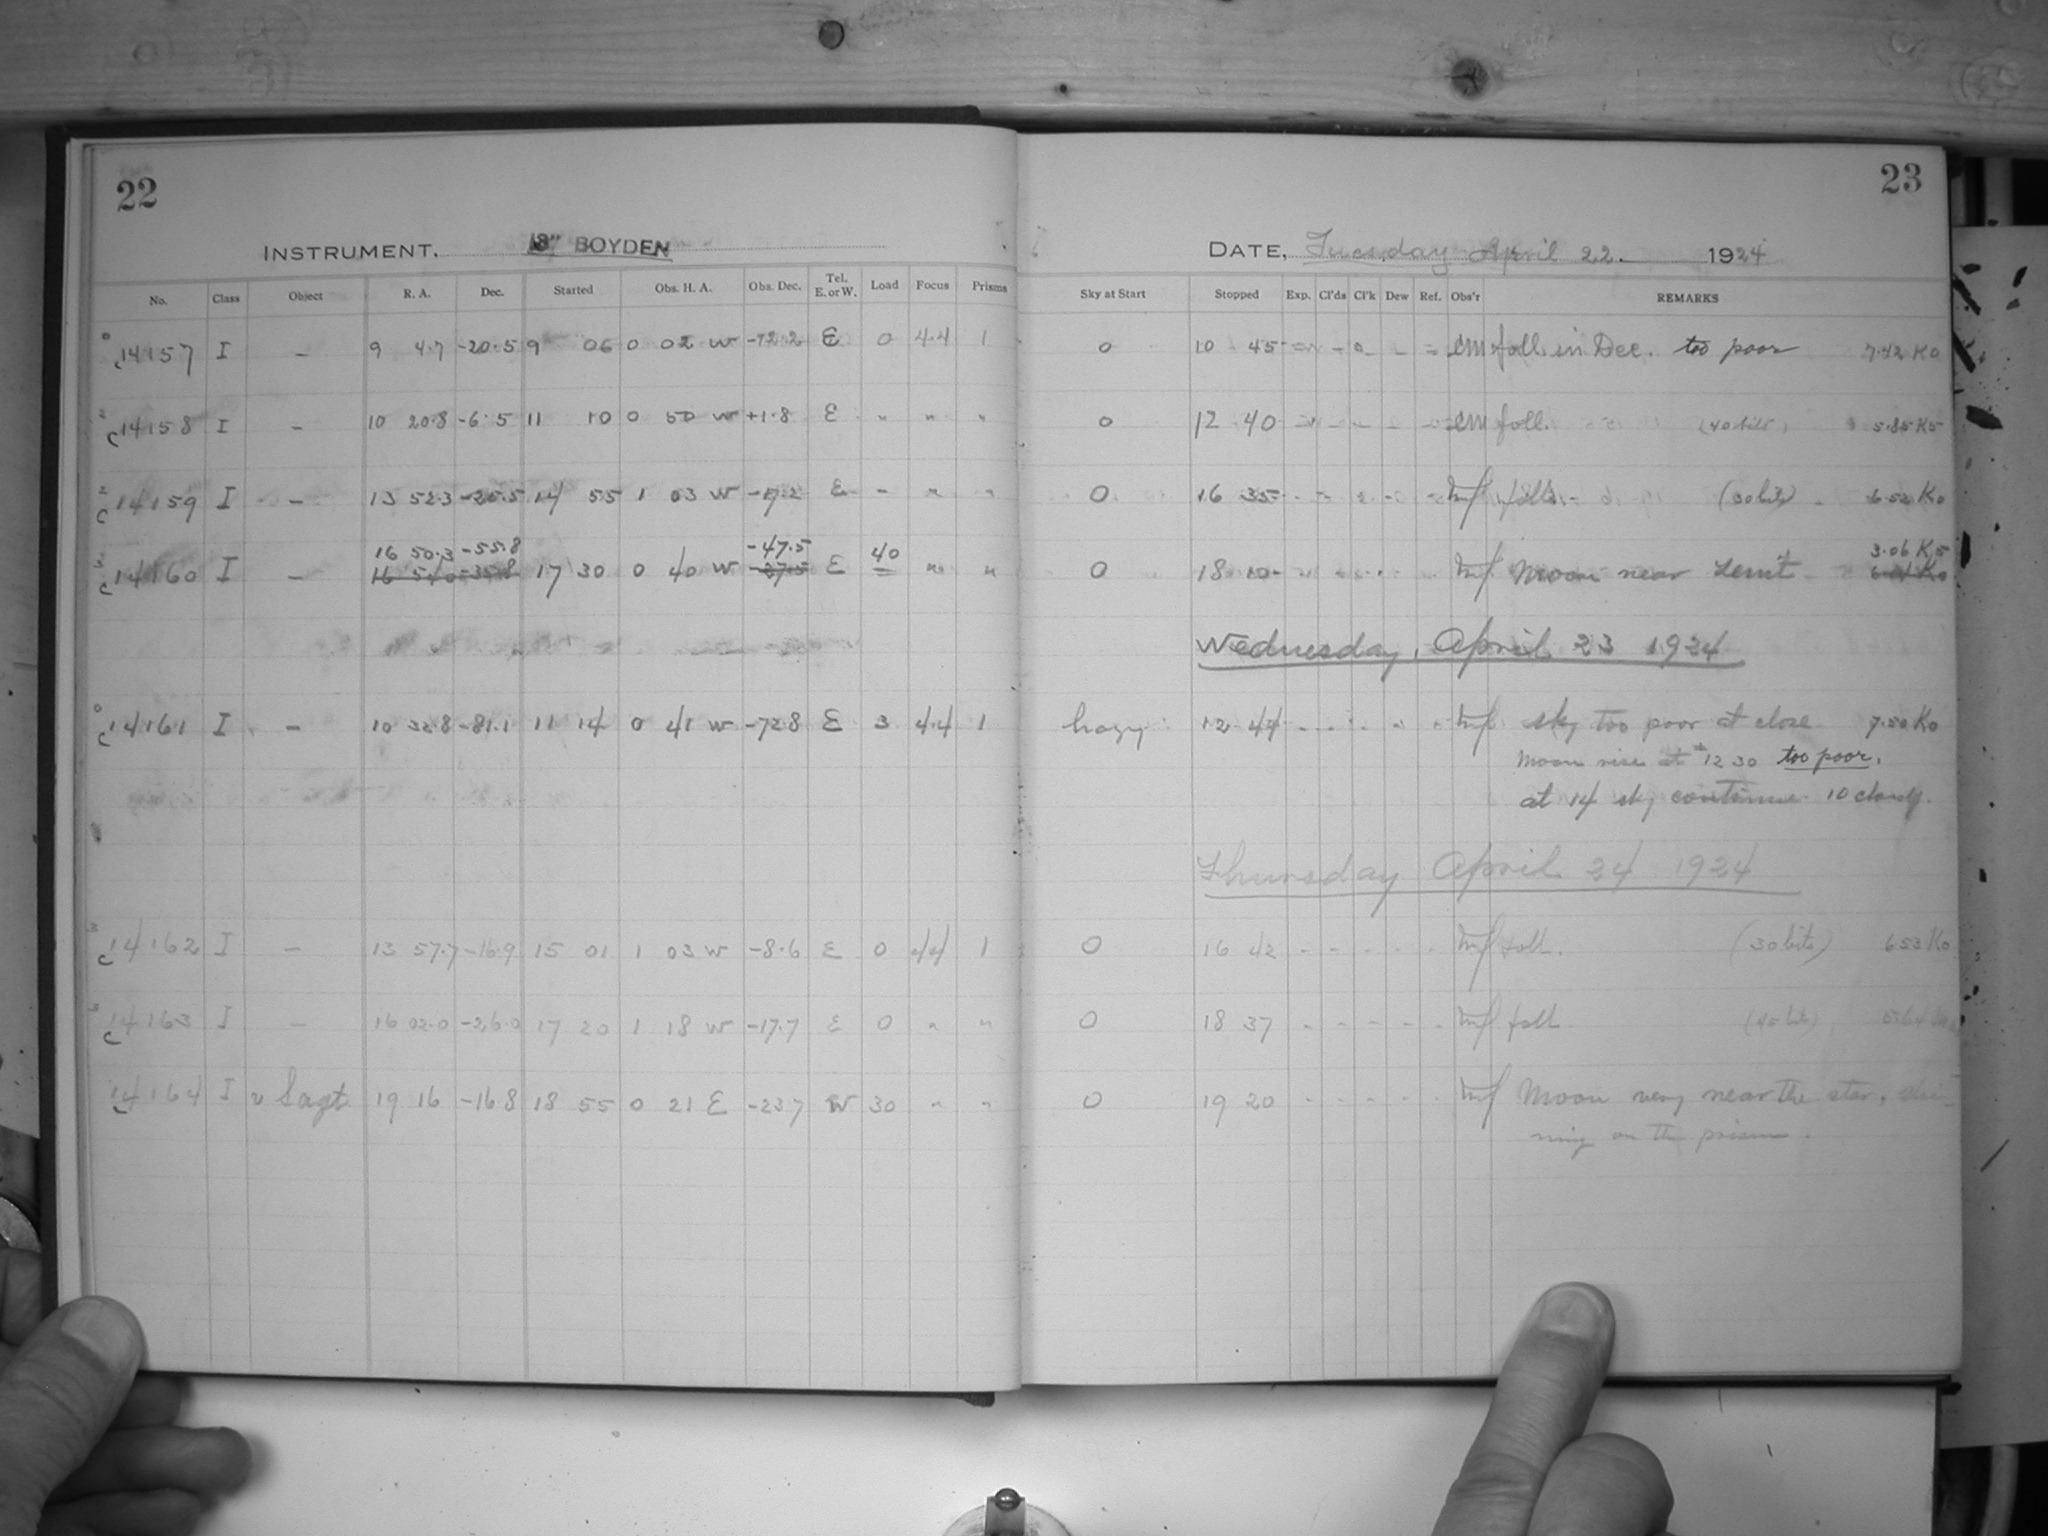 22
23
INSTRUMENT, 13" BOYDEN
DATE, Tuesday April 22. 1924
No. Class Object R. A. Dec. Started Obs. H. A. Obs. Dec. Tel. E. or W. Load Focus Prisms Sky at Start Stopped Exp. Cl'ds Cl'k Dew Ref. Obs'r REMARKS
0 c 14157 I - 9 4.7 -20.5 9 06 0 02 W -12.2 E 0 4.4 1 0 10 45 foll in Dec. too poor 7.42 K0
2 c 14158 I - 10 20.8 -6.5 11 10 0 50 W +1.8 E " " " 0 12 40 foll. (40 bits) 5.85 K5
2 c 14159 I - 13 52.3 -25.5 14 55 1 03 W -17.2 E - " " 0 16 35 foll. (30 bits) 6.52 K0
16 50.3 -55.8 -47.5 40 3.06 K5
3 c 14160 I - 17 30 0 40 W E " " 0 18 10 Moon near
Wednesday, April 23 1924
0 c 14161 I - 10 32.8 -81.1 11 14 0 41 W -72.8 E 3 4.4 1 hazy 12 44 sky too poor at close 7.50 K0
Moon rise at 12 30 too poor.
at 14 sky continue 10 cloudy.
Thursday April 24 1924
3 c 14162 I - 13 57.7 -16.9 15 01 1 03 W -8.6 E 0 44 1 0 16 42 foll. (30 bits) 6.53 K0
3 c 14163 I - 16 02.0 -26.0 17 20 1 18 W -17.7 E 0 " " 0 18 37 foll (45 bits) 5.64
c 14164 I υ Sagt. 19 16 -16.8 18 55 0 21 E -23.7 W 30 " " 0 19 20 Moon very near the star, shi-
ning on the prism.